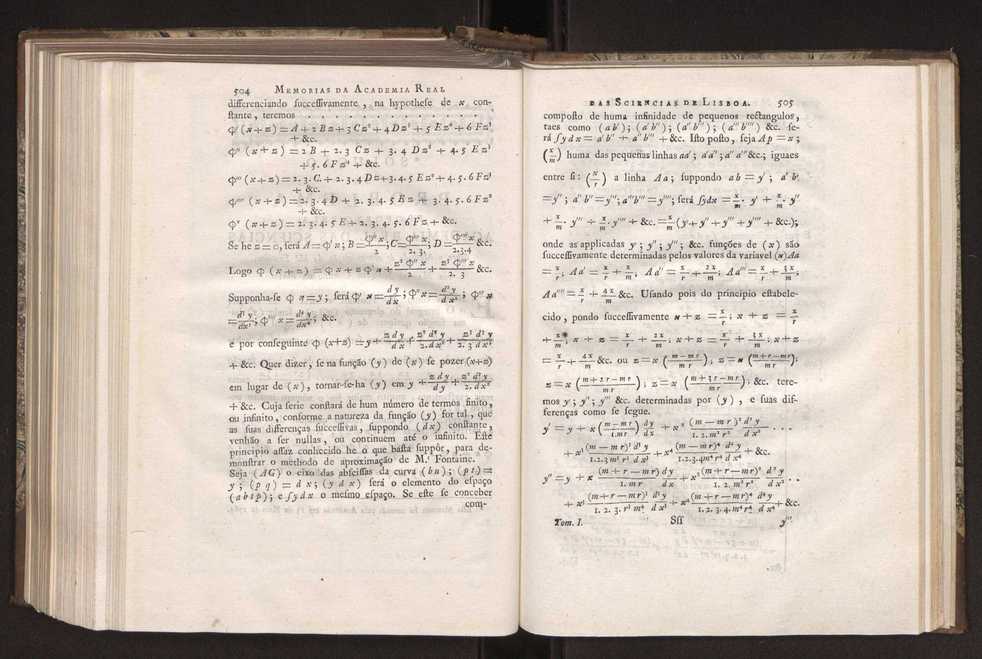 504 MEMORIAS DA ACADEMIA REAL
differenciando ſucceſſivamente, na hypotheſe de x con-
ſtante, teremos . . . . . . . . . . . . . . . . . . .
Φ'(x+z)=A+2Bz+3Cz²+4Dz³+5Ez⁴+6Fz⁵
+ &c.
Φ'' (x+z)=2B+2.3Cz+3.4Dz²+4.5Ez³
+5.6Fz⁴+&c.
Φ''' (x+z)=2.3.C.+2.3.4Dz+3.4.5Ez²+4.5.6Fz³
+ &c.
Φ'''' (x+z)=2.3.4D+2.3.4.5Ez+3.4.5.6Fz²
+ &c.
Φᵛ (x+z)=2.3.4.5E+2.3.4.5.6Fz+&c.
Se he z=0, ſerá A=Φ'x; B=Φ''x/2; C=Φ'''x/2.3.; D=Φ''''x/2.3.4 &c.
Logo Φ (x+z)=Φx+zΦ'x+z²Φ''x/2+z³Φ'''x/2.3 &c.
Supponha-ſe Φ x=y; ſerá Φ' x=dy/dx; Φ''x=d²y/dx²; Φ''' x
=d³y/dx³; Φ'''' x=d⁴y/dx⁴; &c.
e por conſeguinte Φ (x+z)=y+zdy/dx+z²d²y/2.dx²+z³d³y/2.3dx³
+ &c. Quer dizer, ſe na funçaõ (y) de (x) ſe pozer (x+z)
em lugar de (x), tornar-ſe-ha (y) em y+zdy/dy+z²d²y/2.dx²
+ &c. Cuja ſerie conſtará de hum número de termos finito,
ou infinito, conforme a natureza da funçaõ (y) for tal, que
as ſuas differenças ſucceſſivas, ſuppondo (dx) conſtante,
venhaõ a ſer nullas, ou continuem até o infinito. Eſte
principio aſſaz conhecido he o que baſta ſuppôr, para de-
monſtrar o méthodo de aproximaçaõ de M.ʳ Fontaine.
Seja (AG) o eixo das abſeiſſas da curva (bu); (pt)=
y; (pq)=dx; (ydx) ſerá o elemento do eſpaço
(abtp); e ſydx o meſmo eſpaço. Se eſte ſe conceber
com-
DAS SCIENCIAS DE LISBOA. 505
compoſto de huma infinidade de pequenos rectangulos,
taes como (ab'); (a'b''); (a''b'''); (a'''b'''') &c. ſe-
rá ſydx=a'b''+a''b'''+&c. Iſto poſto, ſeja Ap=x;
(x/m) huma das pequenas linhas aa'; a'a''; a''a'''&c.; iguaes
entre ſi: (x/r) a linha Aa; ſuppondo ab=y'; a'b'
=y''; a''b''=y'''; a'''b'''=y''''; ſerá ſydx=x/m.y'+x/m.y''
+x/m.y'''+x/m.y''''+&c.=x/m(y'+y''+y'''+y''''+&c.);
onde as applicadas y'; y''; y'''; &c. funções de (x) ſaõ
ſucceſſivamente determinadas pelos valores da variavel (x) Aa
=x/r, Aa'=x/r+x/m, Aa''=x/r+2x/m; Aa'''=x/r+3x/m;
Aa''''=x/r+4x/m &c. Uſando pois do principio eſtabele-
cido, pondo ſucceſſivamente x+z=x/r; x+z=x/r
+x/m; x+z=x/r+2x/m; x+z=x/r+3x/m; x+z
=x/r+4x/m &c. ou z=x(m-mr/mr), z=x(m+r-mr/mr);
z=x(m+2r-mr/mr); z=x(m+3r-mr/mr); &c. tere-
mos y'; y''; y''' &c. determinadas por (y), e ſuas dif-
ferenças como ſe ſegue.
y'=y+x(m-mr/1.mr)dy/dx+x²(m-mr)²d²y/1.2.m²r²dx² . . .
+x³(m-mr)³d³y/1.2.3m³r³dx³+x⁴(m-mr)⁴d⁴y/1.2.3.4m⁴r⁴dx⁴+&c.
y''=y+x(m+r-mr)dy/1.mrdx+x²(m+r-mr)²d²y/1.2.m²r²dx² . .
+x³(m+r-mr)³d³y/1.2.3.r³m³dx³+x⁴(m+r-mr)⁴d⁴y/1.2.3.4.m⁴r⁴dx⁴+&c.
Tom. I. Sſſ y'''